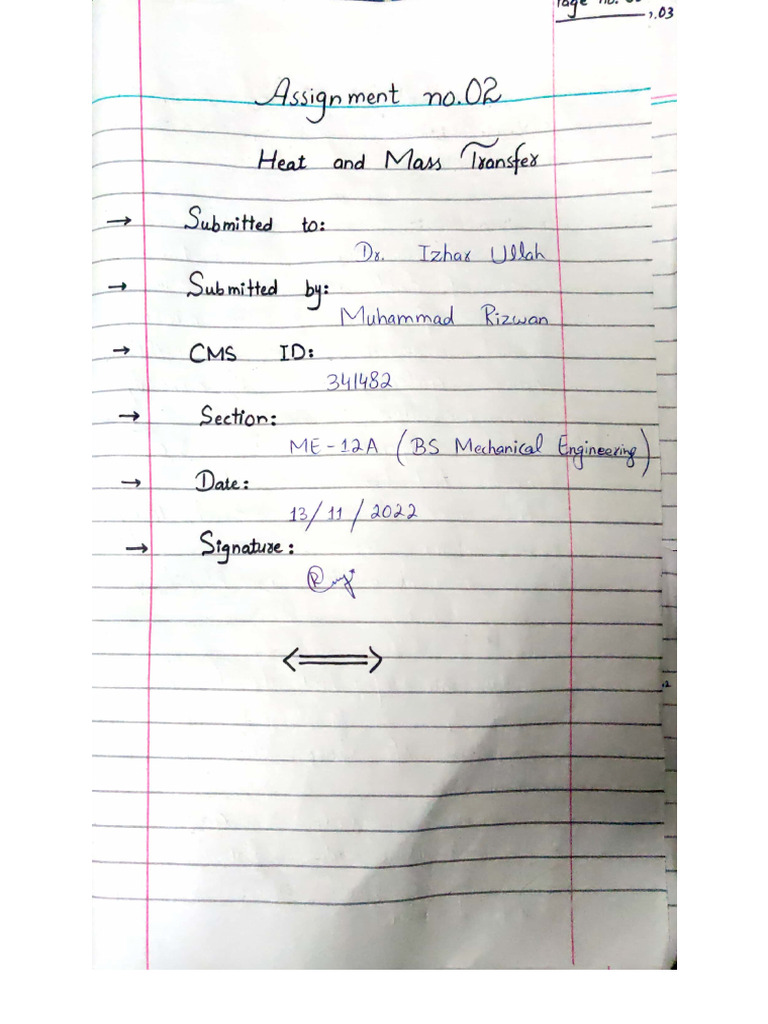 Page no.
.03
Assignment no.02
Heat and Mass Transfer
→ Submitted to:
Dr. Izhar Ullah
→ Submitted by:
Muhammad Rizwan
→ CMS ID:
341482
→ Section:
ME-12A (BS Mechanical Engineering)
→ Date:
13/11/2022
→ Signature: